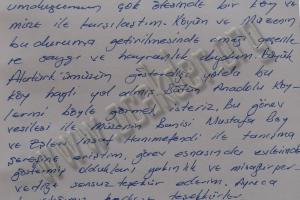 umduğumun çok ötesinde bir köy ve
müze ile karşılaştım. Köyün ve Müzenin
bu duruma getirilmesinde emeği geçenlere
saygı ve hayranlık duydum. Büyük
Atatürk'ümüzün gösterdiği yolda bu
köy hayli yol almış. Bütün Anadolu köy-
lerini böyle görmek isteriz. Bu görev
vesilesi ile müzenin banisi Mustafa Bey
ve Eşleri hanımefendi ile tanışma
şerefine eriştim, görev esnasında evlerinde
göstermiş oldukları yakınlık ve misafirper-
verliğe sonsuz teşekkür ederim. Ayrıca
teşekkürler